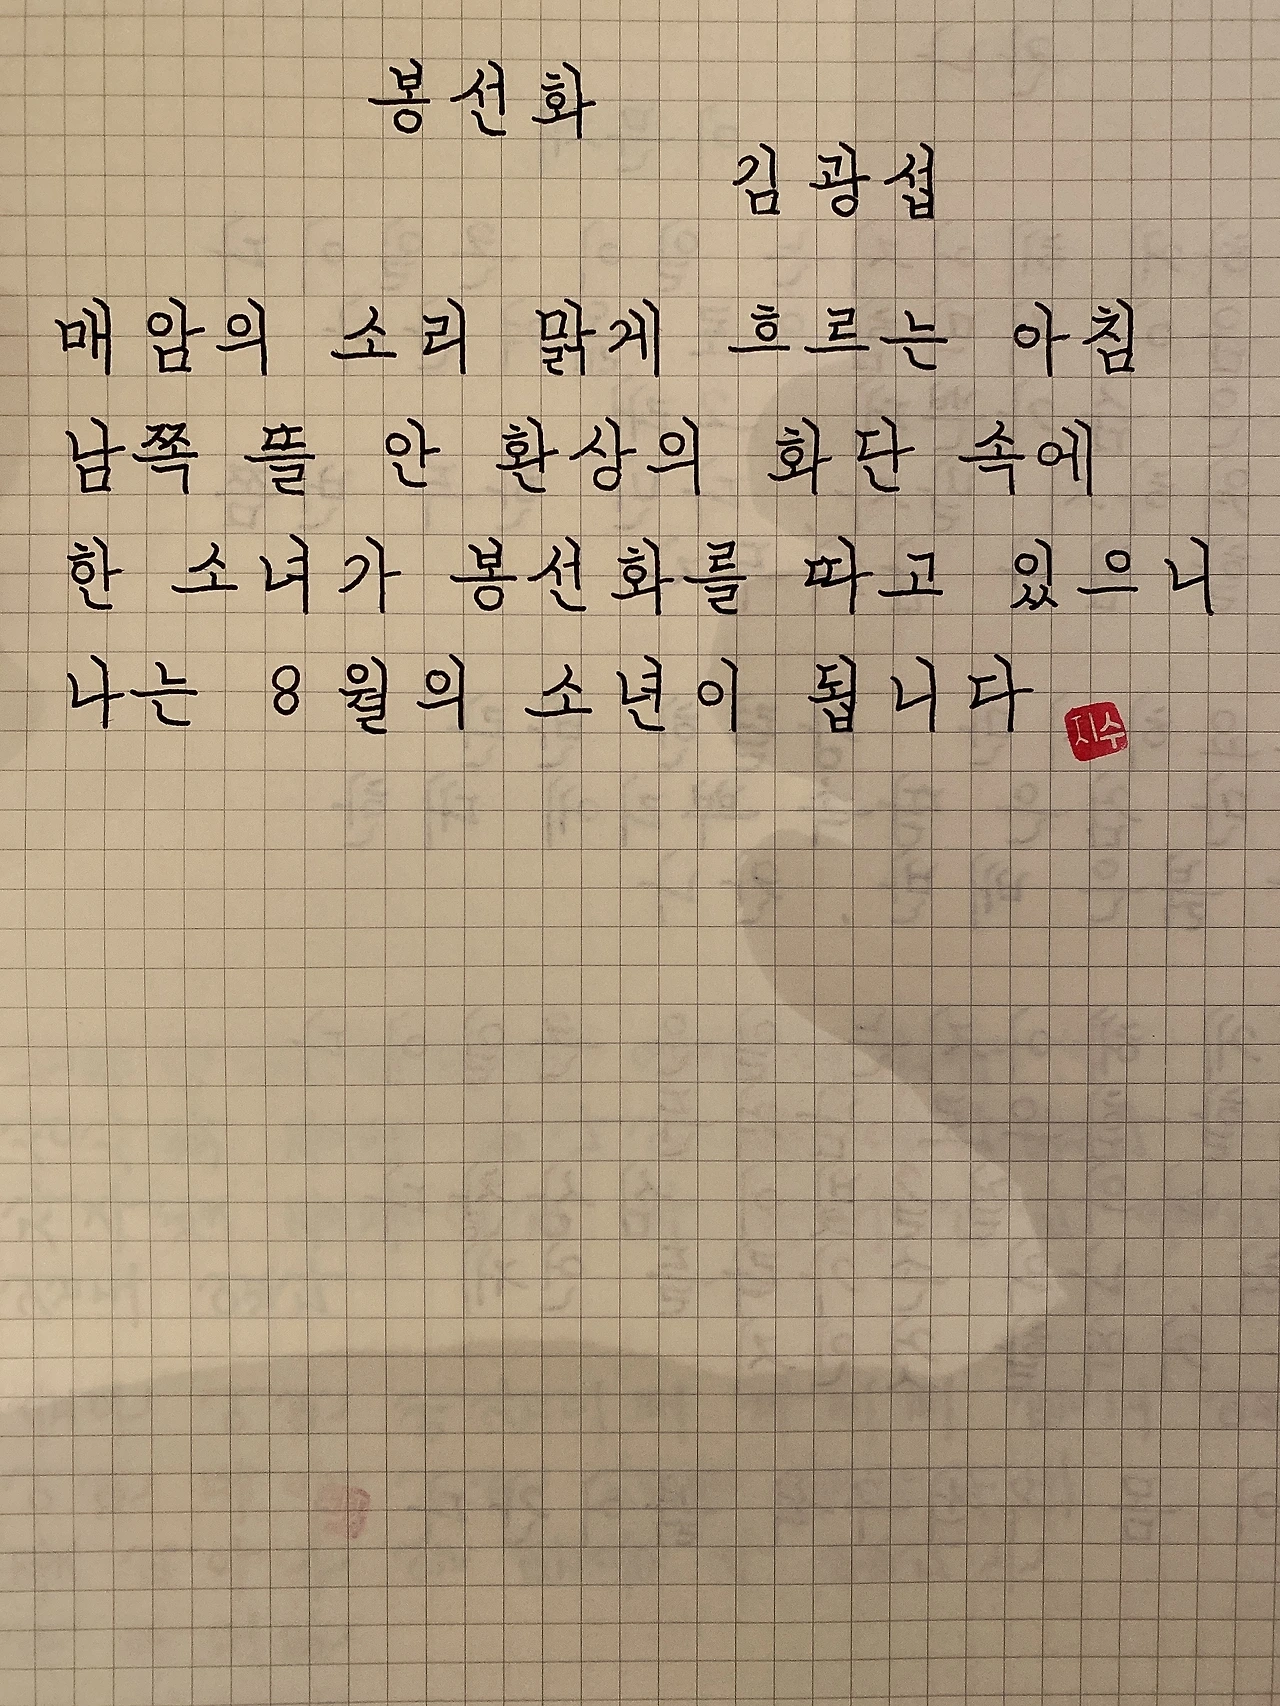 봉선화
김광섭
매암의 소리 맑게 흐르는 아침
남쪽 뜰 안 환상의 화단 속에
한 소녀가 봉선화를 따고 있으니
나는 8월의 소년이 됩니다
지수